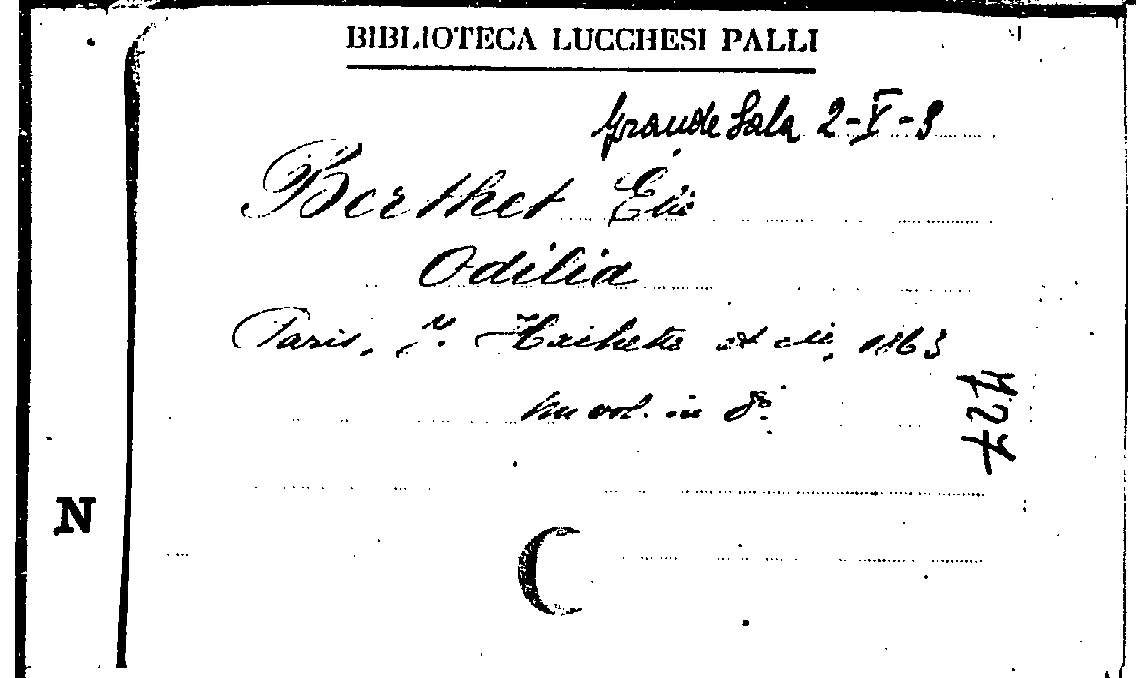 BIBLIOTECA LUCCHESI PALLI
Grande Sala 2-V-3
Berthet Elie
Odilia
Paris, J. Hachette et cie, 1863
un vol. in 8°.
427
N